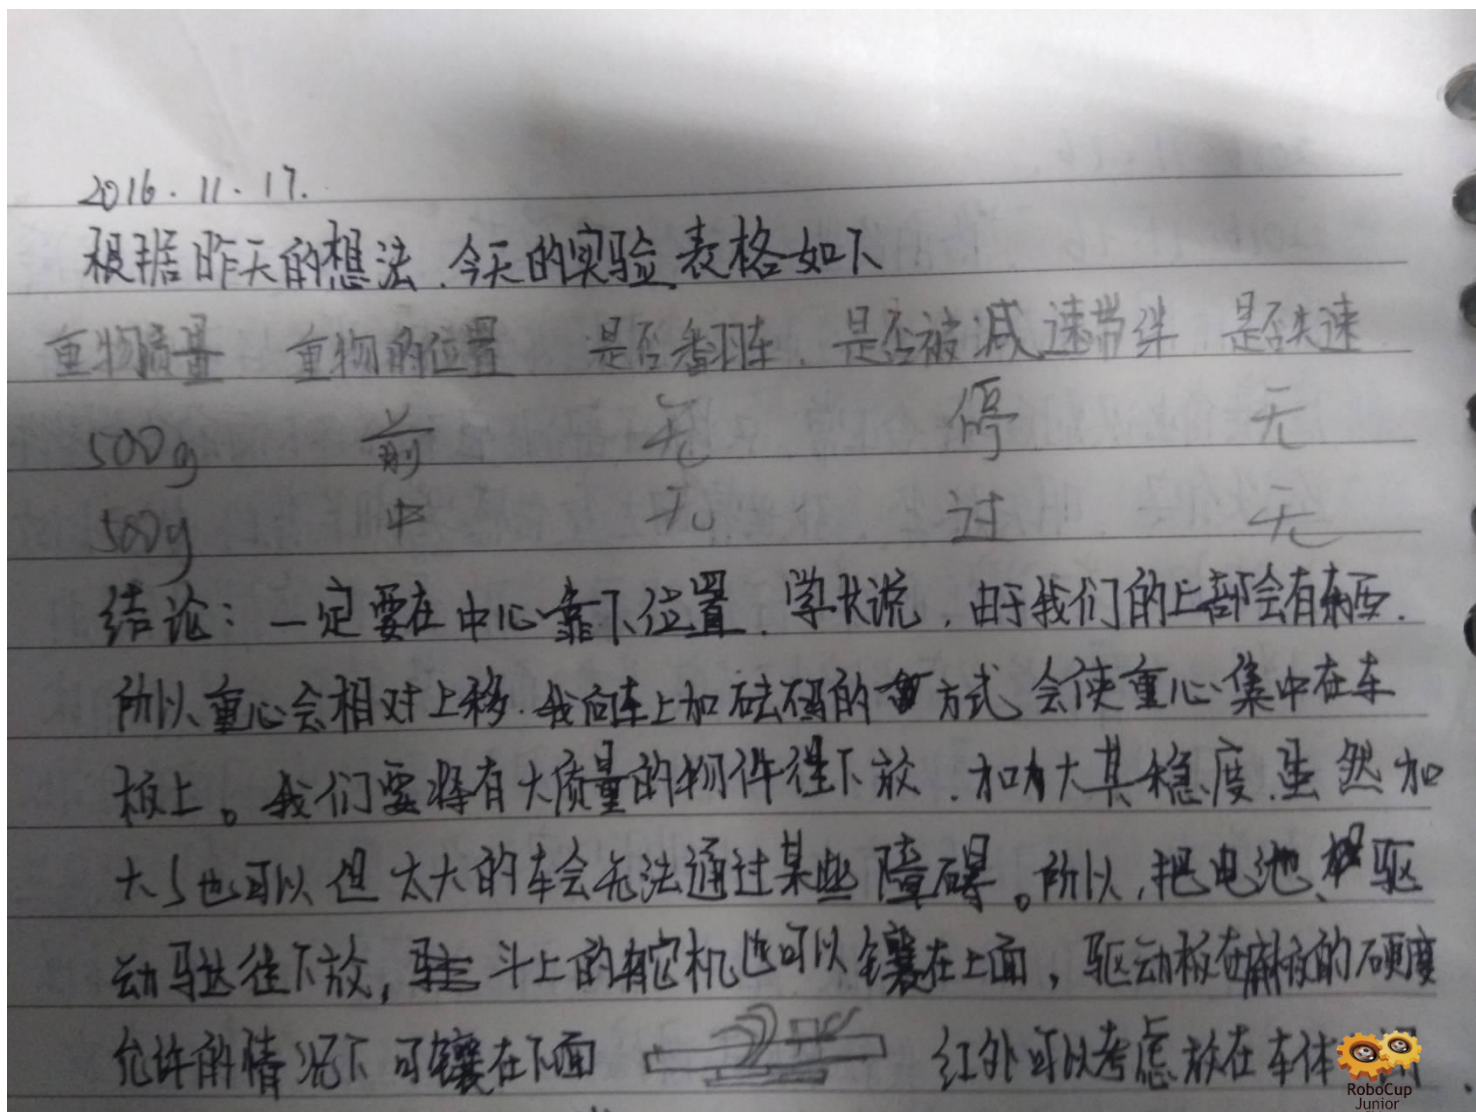 2016.11.17.
根据昨天的想法.今天的实验表格如下
重物质量 重物的位置 是否翻车. 是否被减速带绊 是否失速
500g 前 无 停 无
500g 中 无 过 无
结论：一定要在中心靠下位置.学长说，由于我们的上部会有东西.
所以重心会相对上移.我向车上加砝码的方式会使重心集中在车
板上。我们要将有大质量的物件往下放.加大其稳度.虽然加
大S也可以但太大的车会无法通过某些障碍。所以,把电池、驱
动 往下放, 斗上的舵机也可以镶在上面，驱动板在 的硬度
允许的情况下可镶在下面 红外可以考虑放在车体
RoboCup
Junior